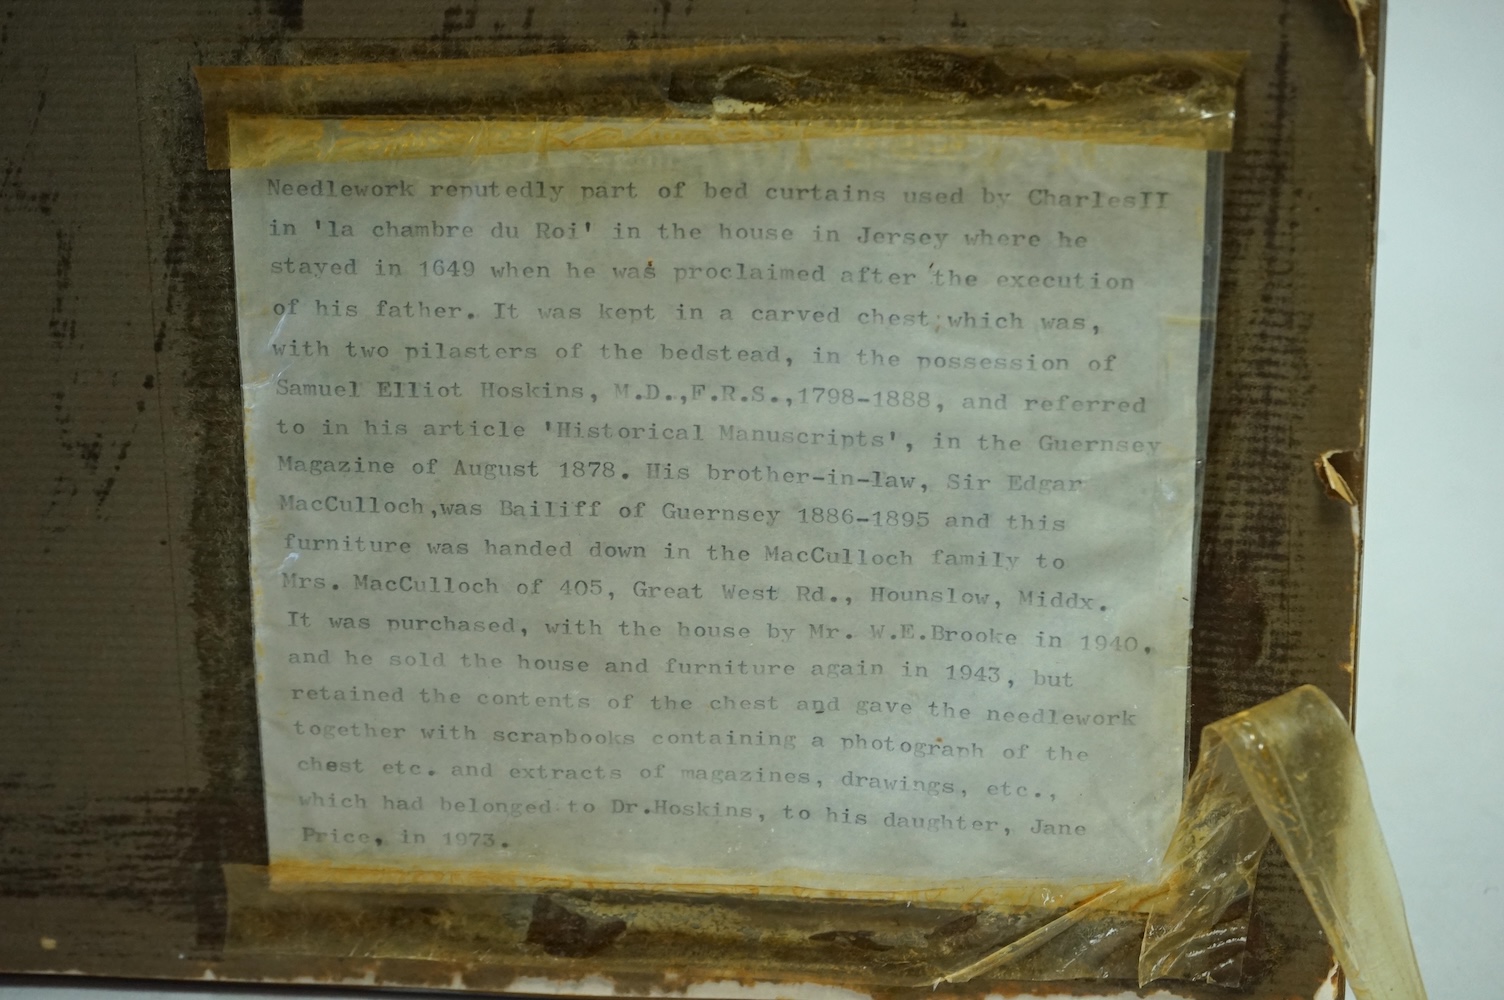 Needlework reputedly part of bed curtains used by CharlesII
in 'la chambre du Roi' in the house in Jersey where he
stayed in 1649 when he was proclaimed after the execution
of his father. It was kept in a carved chest which was,
with two pilasters of the bedstead, in the possession of
Samuel Elliot Hoskins, M.D.,F.R.S.,1798-1888, and referred
to in his article 'Historical Manuscripts', in the Guernsey
Magazine of August 1878. His brother-in-law, Sir Edgar
MacCulloch,was Bailiff of Guernsey 1886-1895 and this
furniture was handed down in the MacCulloch family to
Mrs. MacCulloch of 405, Great West Rd., Hounslow, Middx.
It was purchased, with the house by Mr. W.E.Brooke in 1940.
and he sold the house and furniture again in 1943, but
retained the contents of the chest and gave the needlework
together with scrapbooks containing a photograph of the
chest etc. and extracts of magazines, drawings, etc.,
which had belonged to Dr.Hoskins, to his daughter, Jane
Price, in 1973.